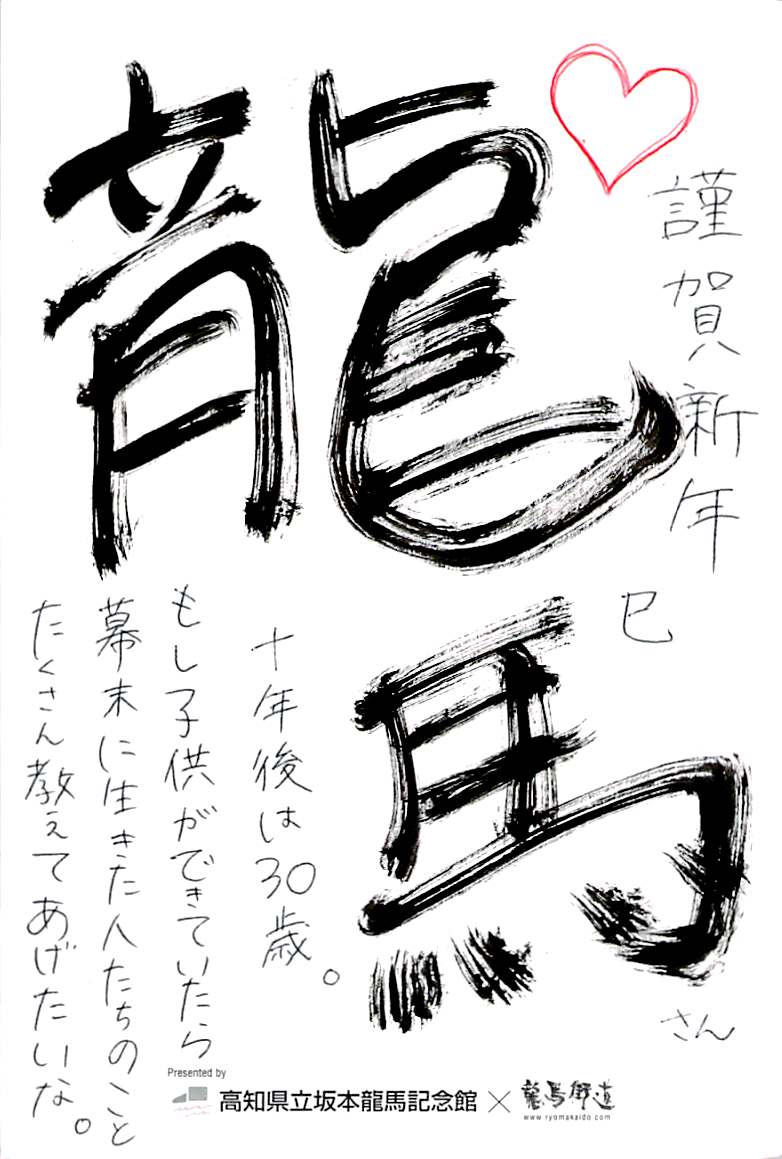 謹賀新年
巳
龍馬
さん
十年後は30歳。
もし子供ができていたら
幕末に生きた人たちのこと
たくさん教えてあげたいな。
Presented by
高知県立坂本龍馬記念館 × 龍馬街道
www.ryomakaido.com